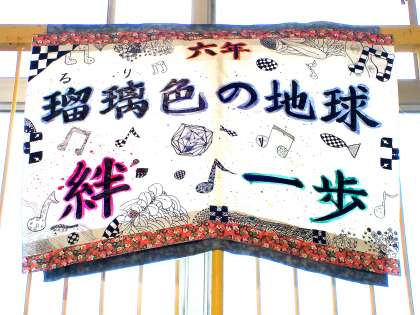 六年
るり
瑠璃色の地球
絆 一歩